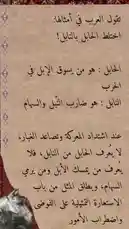 تقول العرب في أمثالها:
اختلط الحابل بالنابل!
الحابل : هو من يسوق الإبل في
الحرب
النابل : هو ضارب النّبل والسهام
عند اشتداد المعركة وتصاعد الغبار،
لا يُعرف الحابل من النابل، فلا
يعرف من يمسك الإبل ومن يرمي
السهام، ويطلق المثل من باب
الاستعارة التمثيلية على الفوضى
واضطراب الأمور